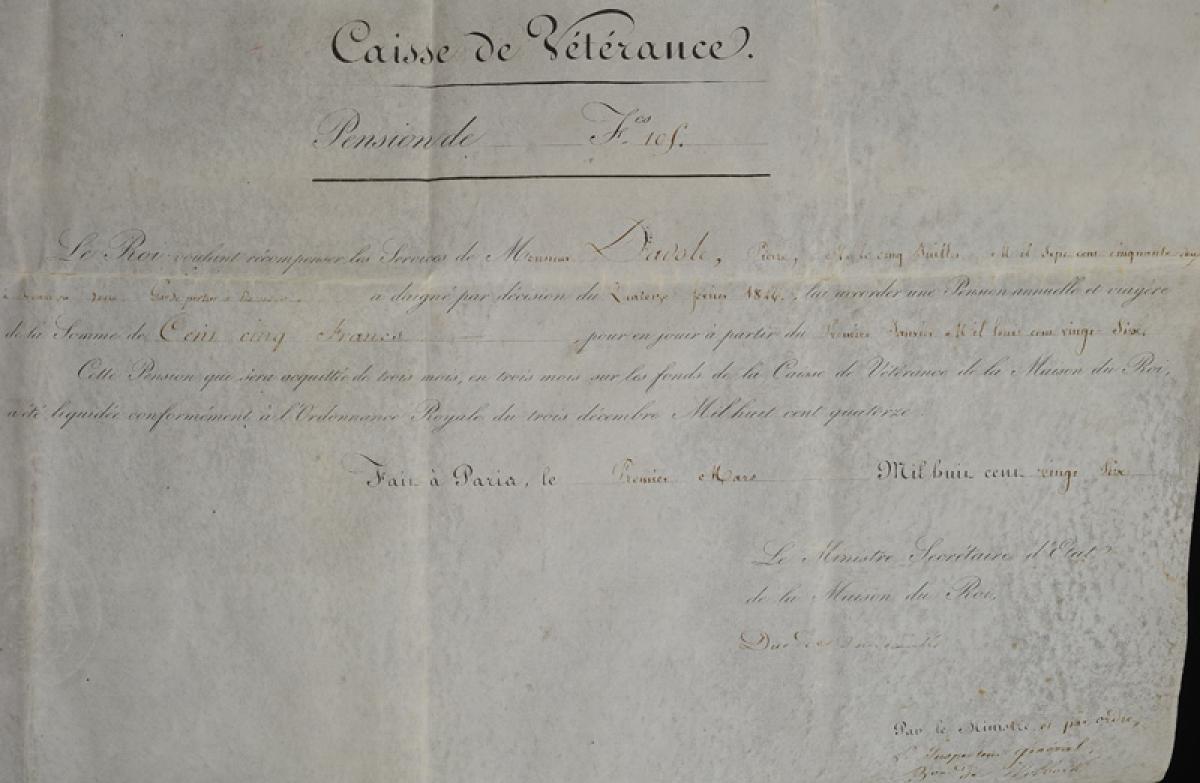 Caisse de Vétérance.
Pension de F.cs 105.
Le Roi voulant récompenser les Services de Monsieur Davole, Pierre, Né le cinq Juillet Mil Sept cent cinquante
a daigné par décision du février 1826, lui accorder une Pension annuelle et viagère
de la Somme de Cent cinq Francs pour en jouir à partir du Premier Janvier Mil huit cent vingt Six.
Cette Pension que sera acquittée de trois mois, en trois mois sur les fonds de la Caisse de Vétérance de la Maison du Roi,
a été liquidée conformément à l'Ordonnance Royale du trois décembre Mil huit cent quatorze
Fait à Paris, le Premier Mars Mil huit cent vingt Six
Le Ministre Secrétaire d'Etat
de la Maison du Roi,
Duc de
Par le Ministre et par ordre,
L'Inspecteur général,